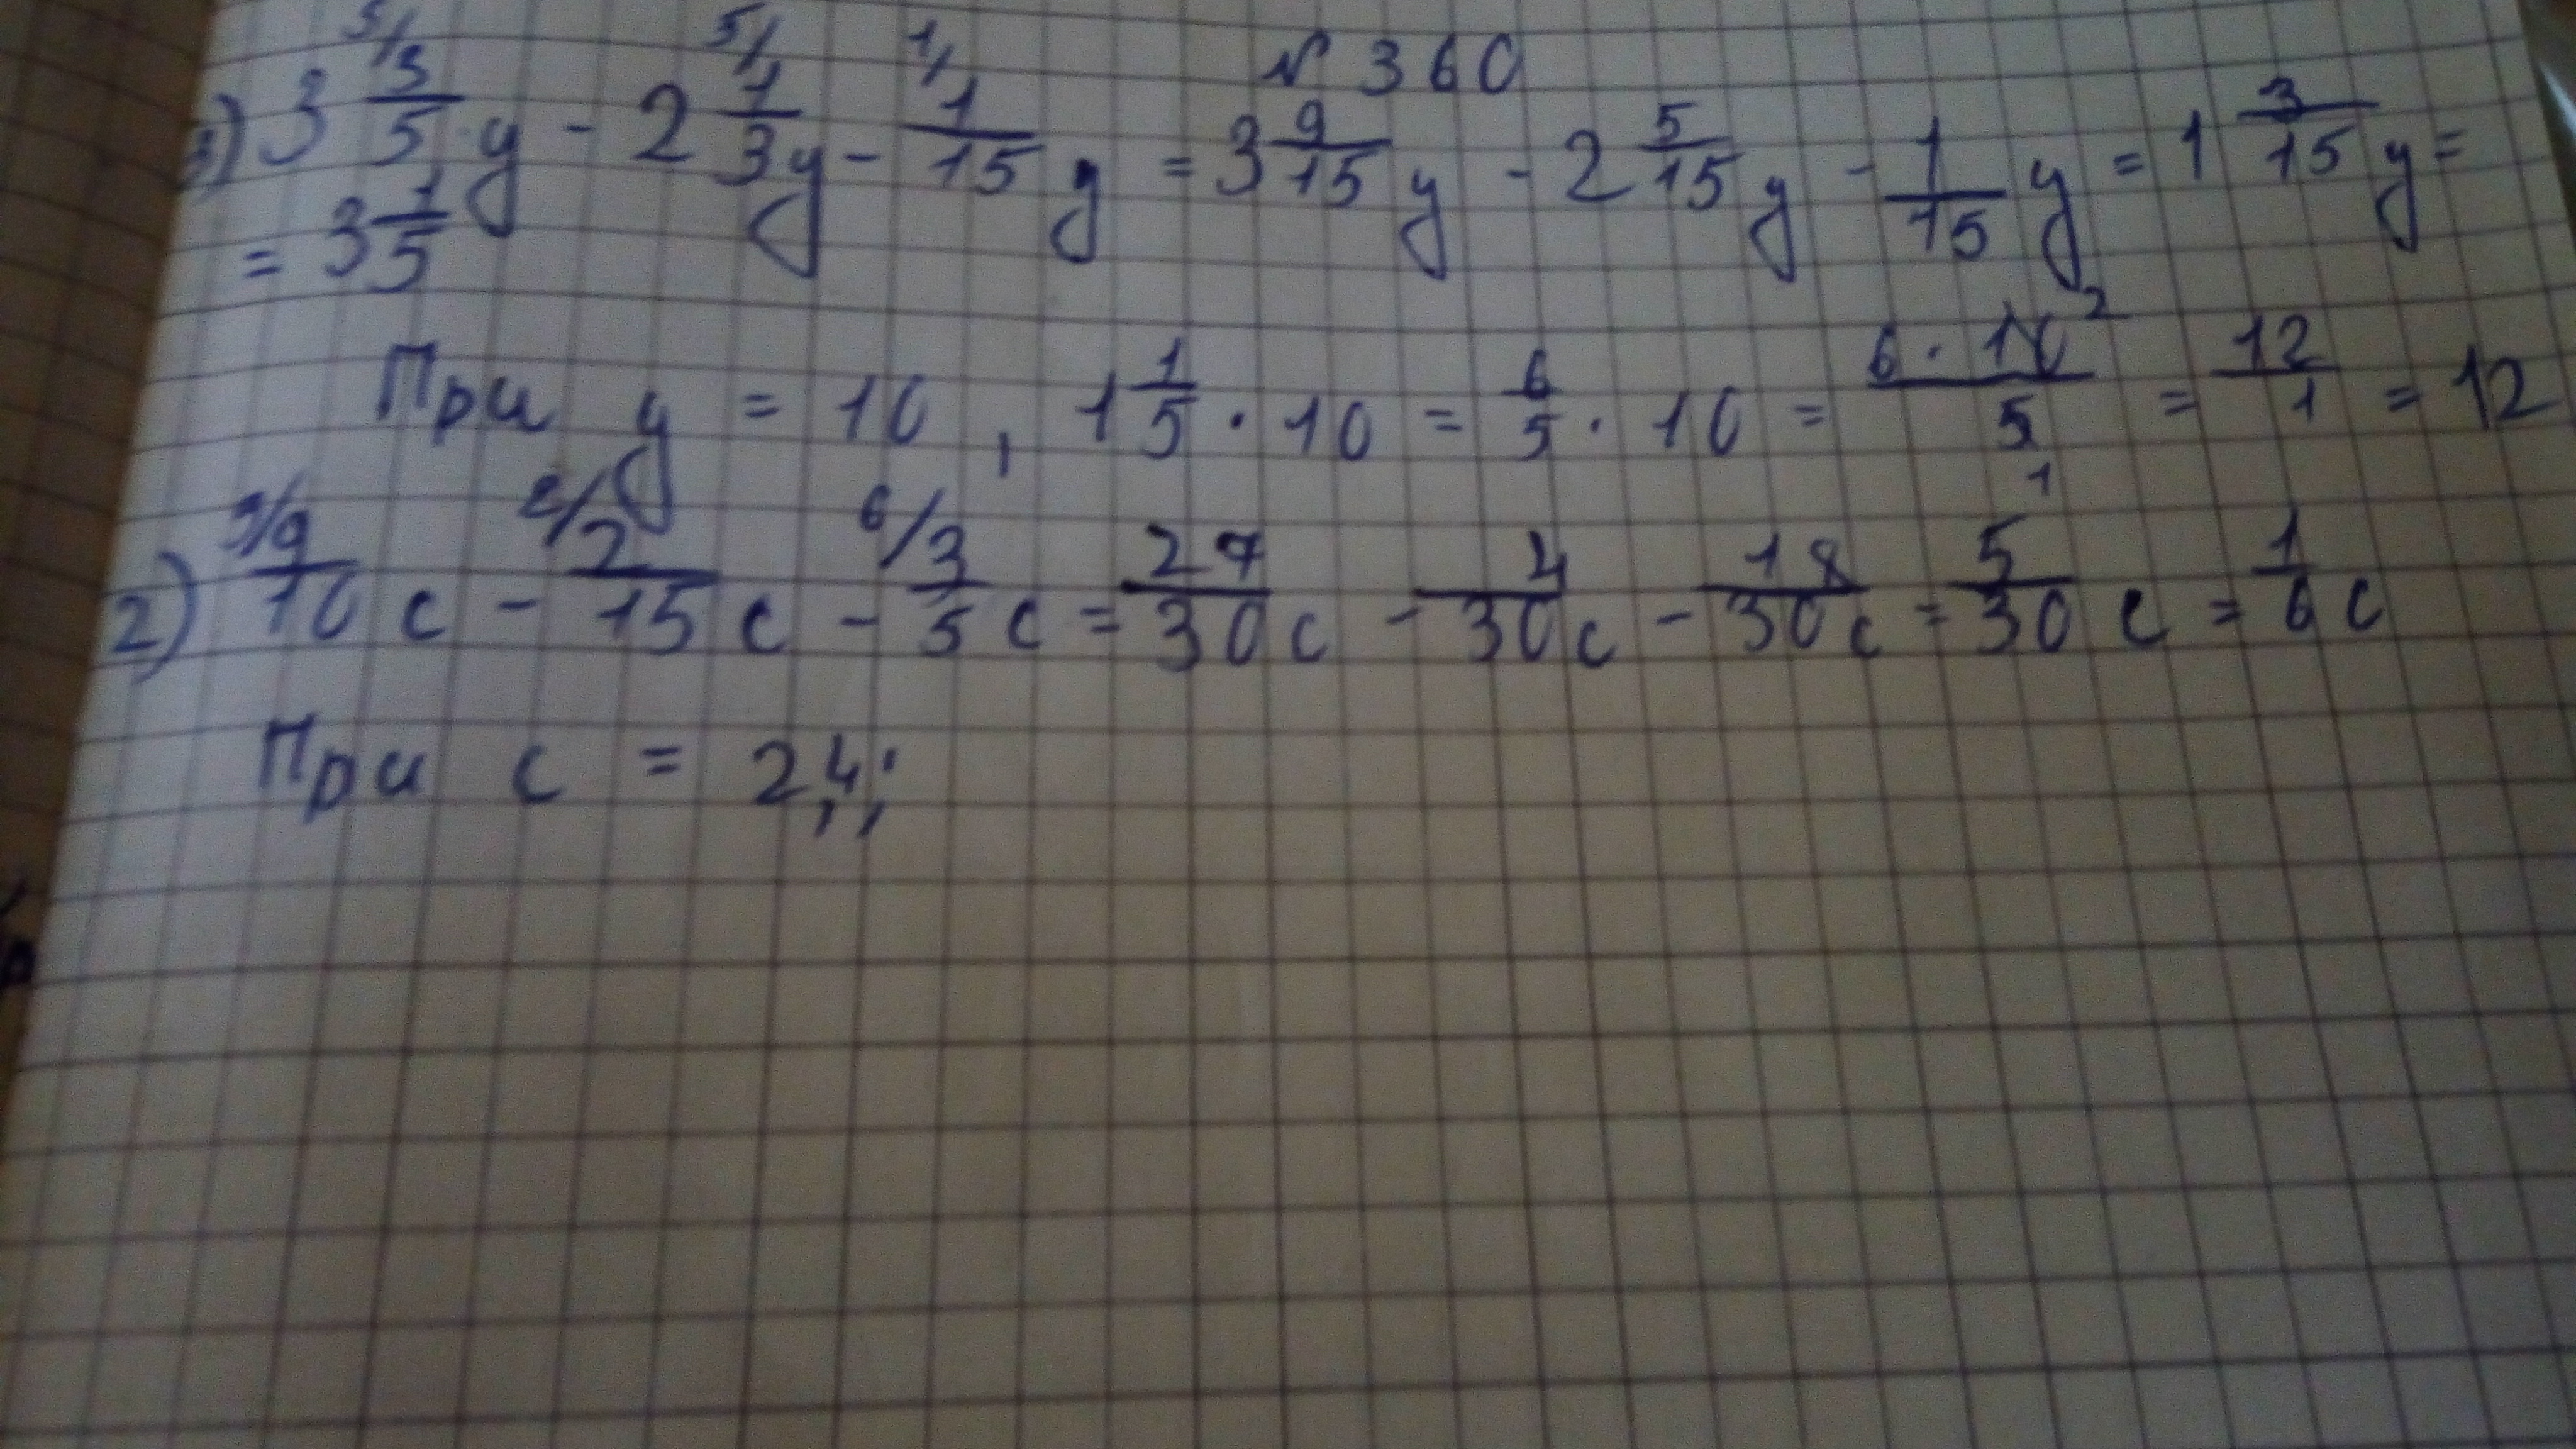 № 360
1) 3 3/5 y - 2 1/3 y - 1/15 y = 3 9/15 y - 2 5/15 y - 1/15 y = 1 3/15 y =
= 3 1/5
При y = 10, 1 1/5 · 10 = 6/5 · 10 = 6 · 10/5 = 12/1 = 12
2) 9/10 c - 2/15 c - 3/5 c = 27/30 c - 4/30 c - 18/30 c = 5/30 c = 1/6 c
При c = 2,4;